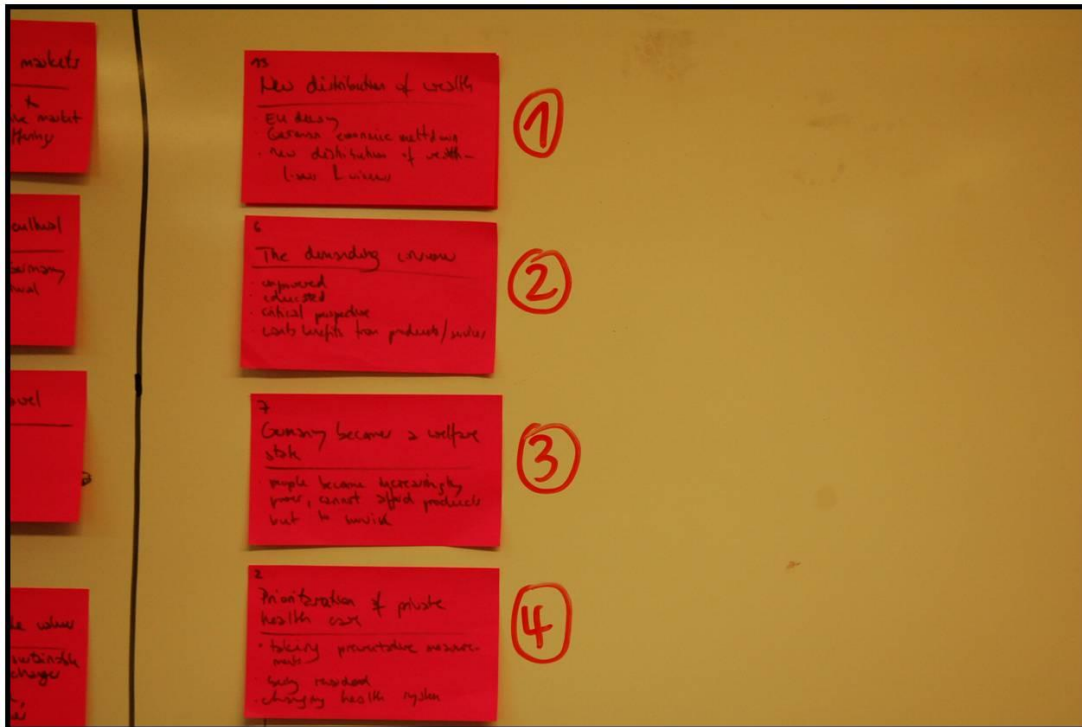 markets
&
market
offering
cultural
Germany
ovel
values
sustainable
changes
13
New distribution of wealth
EU decay
· German economic meltdown
· New distribution of wealth -
6
The demanding consumer
· empowered
· educated
· critical perspective
· wants benefits from products/services
7
Germany becomes a welfare
state
people become increasingly
poor, cannot afford products
but to
2
Prioritization of private
health care
· taking preventative measure-
ments
· being rewarded
· changing health system
1
2
3
4